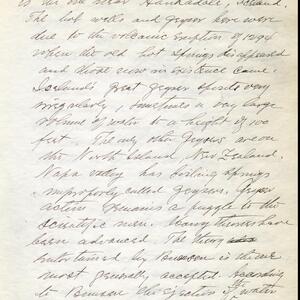 to the one near Haukadalr, Iceland.
The hot wells and geyser here were
due to the volcanic eruption of 1294
when the old hot springs disappeared
and those now in existence came.
Iceland's great geyser spouts very
irregularly, sometimes a very large
volume of water to a height of 100
feet. The only other Geysers are on
the North Island, New Zealand.
Napa valley has boiling springs
improperly called geysers. Geyser
action remains a puzzle to the
scientific men. Many theories have
been advanced. The theory
entertained by Bunsen is the one
most generally accepted. According
to Bunsen the ejection of water